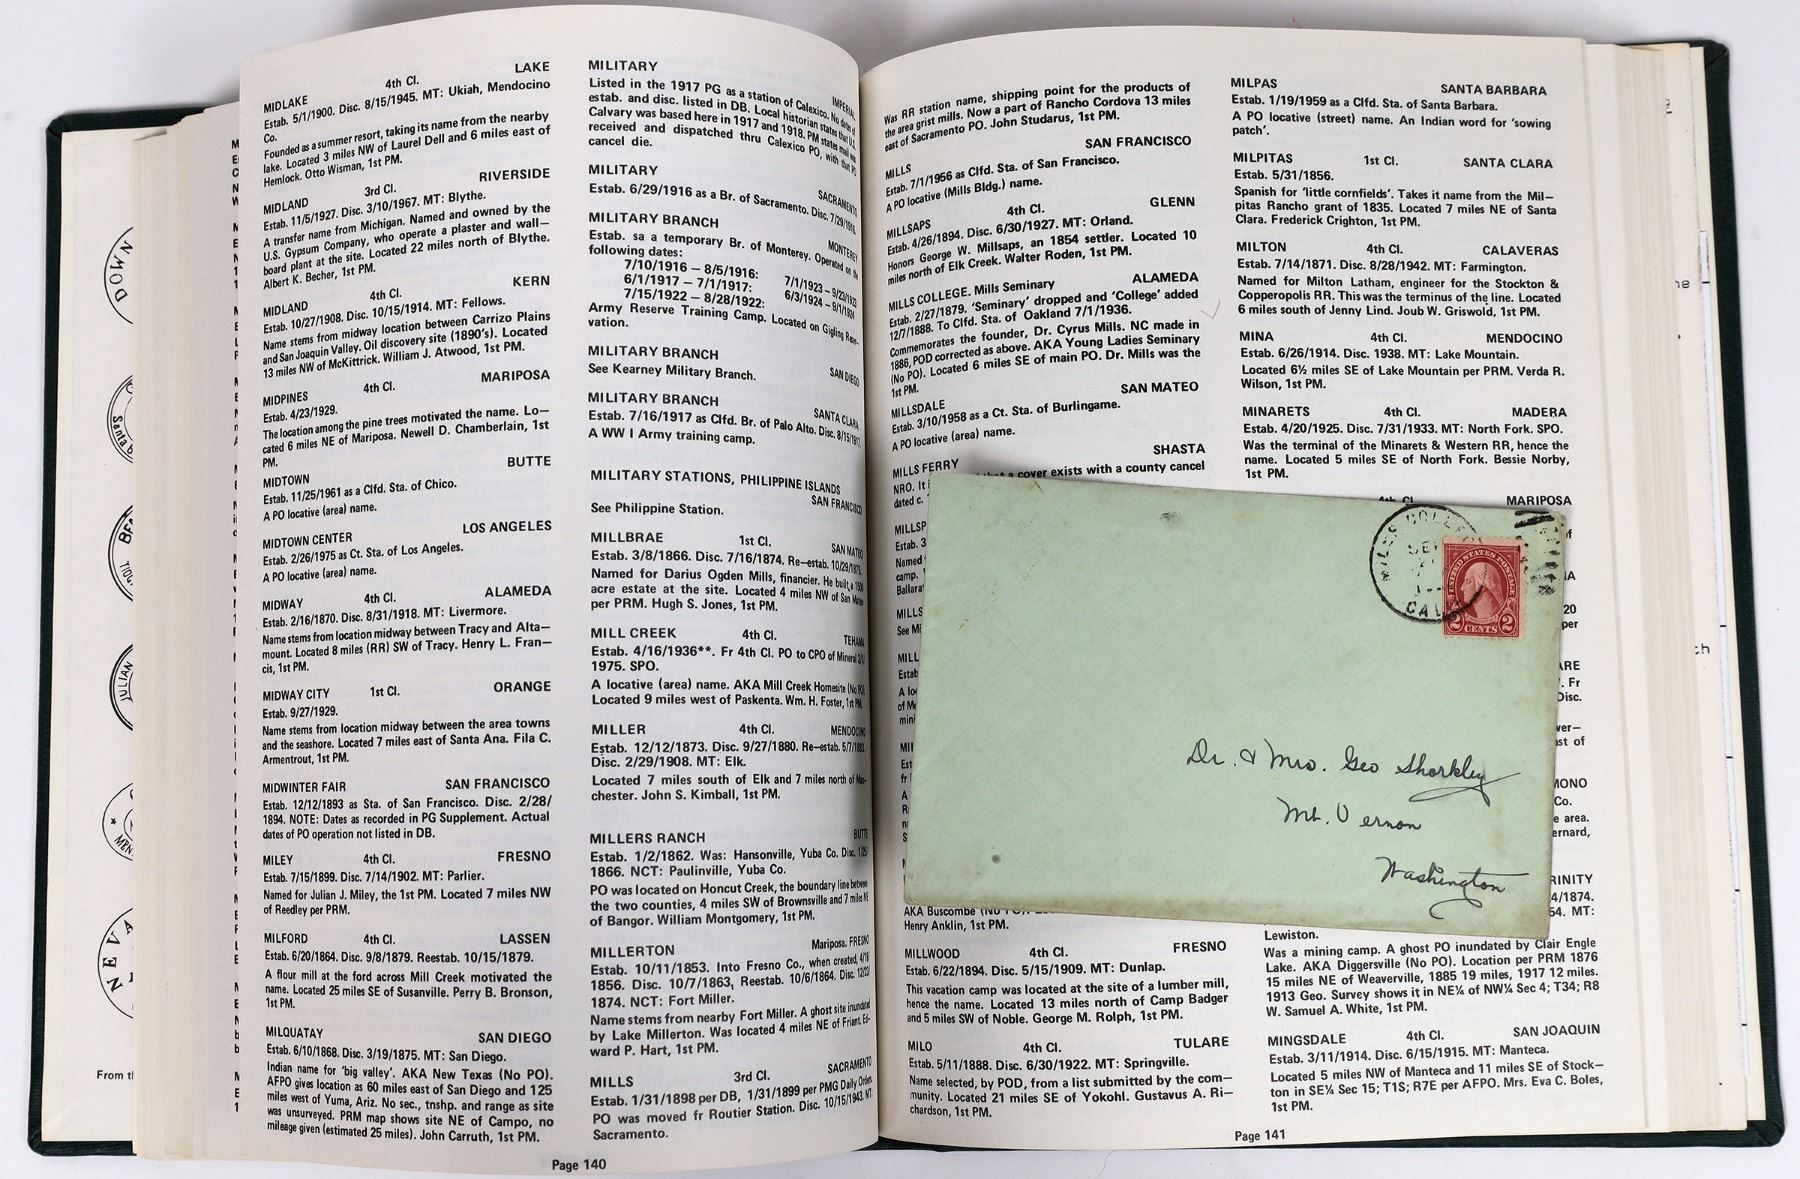 MIDLAKE 4th Cl. LAKE
Estab. 5/1/1900. Disc. 8/15/1945. MT: Ukiah, Mendocino
Co.
Founded as a summer resort, taking its name from the nearby
lake. Located 3 miles NW of Laurel Dell and 6 miles east of
Hemlock. Otto Wisman, 1st PM.
MIDLAND 3rd Cl. RIVERSIDE
Estab. 11/5/1927. Disc. 3/10/1967. MT: Blythe.
A transfer name from Michigan. Named and owned by the
U.S. Gypsum Company, who operate a plaster and wall—
board plant at the site. Located 22 miles north of Blythe.
Albert K. Becher, 1st PM.
MIDLAND 4th Cl. KERN
Estab. 10/27/1908. Disc. 10/15/1914. MT: Fellows.
Name stems from midway location between Carrizo Plains
and San Joaquin Valley. Oil discovery site (1890's). Located
13 miles NW of McKittrick. William J. Atwood, 1st PM.
MIDPINES 4th Cl. MARIPOSA
Estab. 4/23/1929.
The location among the pine trees motivated the name. Lo—
cated 6 miles NE of Mariposa. Newell D. Chamberlain, 1st
PM.
MIDTOWN BUTTE
Estab. 11/25/1961 as a Clfd. Sta. of Chico.
A PO locative (area) name.
MIDTOWN CENTER LOS ANGELES
Estab. 2/26/1975 as Ct. Sta. of Los Angeles.
A PO locative (area) name.
MIDWAY 4th Cl. ALAMEDA
Estab. 2/16/1870. Disc. 8/31/1918. MT: Livermore.
Name stems from location midway between Tracy and Alta—
mount. Located 8 miles (RR) SW of Tracy. Henry L. Fran—
cis, 1st PM.
MIDWAY CITY 1st Cl. ORANGE
Estab. 9/27/1929.
Name stems from location midway between the area towns
and the seashore. Located 7 miles east of Santa Ana. Fila C.
Armentrout, 1st PM.
MIDWINTER FAIR SAN FRANCISCO
Estab. 12/12/1893 as Sta. of San Francisco. Disc. 2/28/
1894. NOTE: Dates as recorded in PG Supplement. Actual
dates of PO operation not listed in DB.
MILEY 4th Cl. FRESNO
Estab. 7/15/1899. Disc. 7/14/1902. MT: Parlier.
Named for Julian J. Miley, the 1st PM. Located 7 miles NW
of Reedley per PRM.
MILFORD 4th Cl. LASSEN
Estab. 6/20/1864. Disc. 9/8/1879. Reestab. 10/15/1879.
A flour mill at the ford across Mill Creek motivated the
name. Located 25 miles SE of Susanville. Perry B. Bronson,
1st PM.
MILQUATAY SAN DIEGO
Estab. 6/10/1868. Disc. 3/19/1875. MT: San Diego.
Indian name for 'big valley'. AKA New Texas (No PO).
AFPO gives location as 60 miles east of San Diego and 125
miles west of Yuma, Ariz. No sec., tnshp. and range as site
was unsurveyed. PRM map shows site NE of Campo, no
mileage given (estimated 25 miles). John Carruth, 1st PM.
MILITARY IMPERIAL
Listed in the 1917 PG as a station of Calexico. No dates of
estab. and disc. listed in DB. Local historian states that U.S.
Calvary was based here in 1917 and 1918. PM states mail was
received and dispatched thru Calexico PO, with that PO
cancel die.
MILITARY SACRAMENTO
Estab. 6/29/1916 as a Br. of Sacramento. Disc. 7/29/1916.
MILITARY BRANCH MONTEREY
Estab. sa a temporary Br. of Monterey. Operated on the
following dates:
7/10/1916 — 8/5/1916: 7/1/1923 – 9/23/1923
6/1/1917 — 7/1/1917: 6/3/1924 – 9/1/1924
7/15/1922 — 8/28/1922:
Army Reserve Training Camp. Located on Gigling Reser—
vation.
MILITARY BRANCH SAN DIEGO
See Kearney Military Branch.
MILITARY BRANCH SANTA CLARA
Estab. 7/16/1917 as Clfd. Br. of Palo Alto. Disc. 8/15/1917.
A WW I Army training camp.
MILITARY STATIONS, PHILIPPINE ISLANDS
SAN FRANCISCO
See Philippine Station.
MILLBRAE 1st Cl. SAN MATEO
Estab. 3/8/1866. Disc. 7/16/1874. Re—estab. 10/29/1875.
Named for Darius Ogden Mills, financier. He built a 1500
acre estate at the site. Located 4 miles NW of San Mateo
per PRM. Hugh S. Jones, 1st PM.
MILL CREEK 4th Cl. TEHAMA
Estab. 4/16/1936**. Fr 4th Cl. PO to CPO of Mineral
1975. SPO.
A locative (area) name. AKA Mill Creek Homesite (No PO).
Located 9 miles west of Paskenta. Wm. H. Foster, 1st PM.
MILLER 4th Cl. MENDOCINO
Estab. 12/12/1873. Disc. 9/27/1880. Re—estab. 5/7/1883.
Disc. 2/29/1908. MT: Elk.
Located 7 miles south of Elk and 7 miles north of Man—
chester. John S. Kimball, 1st PM.
MILLERS RANCH BUTTE
Estab. 1/2/1862. Was: Hansonville, Yuba Co. Disc. 1/25/
1866. NCT: Paulinville, Yuba Co.
PO was located on Honcut Creek, the boundary line between
the two counties, 4 miles SW of Brownsville and 7 miles NE
of Bangor. William Montgomery, 1st PM.
MILLERTON Mariposa. FRESNO
Estab. 10/11/1853. Into Fresno Co., when created, 4/19/
1856. Disc. 10/7/1863, Reestab. 10/6/1864. Disc. 12/22/
1874. NCT: Fort Miller.
Name stems from nearby Fort Miller. A ghost site inundated
by Lake Millerton. Was located 4 miles NE of Friant. Ed—
ward P. Hart, 1st PM.
MILLS 3rd Cl. SACRAMENTO
Estab. 1/31/1898 per DB, 1/31/1899 per PMG Daily Orders.
PO was moved fr Routier Station. Disc. 10/15/1943. MT:
Sacramento.
Page 140
Was RR station name, shipping point for the products of
the area grist mills. Now a part of Rancho Cordova 13 miles
east of Sacramento PO. John Studarus, 1st PM.
MILLS SAN FRANCISCO
Estab. 7/1/1956 as Clfd. Sta. of San Francisco.
A PO locative (Mills Bldg.) name.
MILLSAPS 4th Cl. GLENN
Estab. 4/26/1894. Disc. 6/30/1927. MT: Orland.
Honors George W. Millsaps, an 1854 settler. Located 10
miles north of Elk Creek. Walter Roden, 1st PM.
MILLS COLLEGE. Mills Seminary ALAMEDA
Estab. 2/27/1879. 'Seminary' dropped and 'College' added
12/7/1888. To Clfd. Sta. of Oakland 7/1/1936.
Commemorates the founder, Dr. Cyrus Mills. NC made in
1886, POD corrected as above. AKA Young Ladies Seminary
(No PO). Located 6 miles SE of main PO. Dr. Mills was the
1st PM.
MILLSDALE SAN MATEO
Estab. 3/10/1958 as a Ct. Sta. of Burlingame.
A PO locative (area) name.
MILLS FERRY SHASTA
NRO. It that a cover exists with a county cancel
dated c.
MILLSP
MILLS
See Mi
AKA Buscombe (No PO).
Henry Anklin, 1st PM.
MILLWOOD 4th Cl. FRESNO
Estab. 6/22/1894. Disc. 5/15/1909. MT: Dunlap.
This vacation camp was located at the site of a lumber mill,
hence the name. Located 13 miles north of Camp Badger
and 5 miles SW of Noble. George M. Rolph, 1st PM.
MILO 4th Cl. TULARE
Estab. 5/11/1888. Disc. 6/30/1922. MT: Springville.
Name selected, by POD, from a list submitted by the com—
munity. Located 21 miles SE of Yokohl. Gustavus A. Ri—
chardson, 1st PM.
MILPAS SANTA BARBARA
Estab. 1/19/1959 as a Clfd. Sta. of Santa Barbara.
A PO locative (street) name. An Indian word for 'sowing
patch'.
MILPITAS 1st Cl. SANTA CLARA
Estab. 5/31/1856.
Spanish for 'little cornfields'. Takes it name from the Mil—
pitas Rancho grant of 1835. Located 7 miles NE of Santa
Clara. Frederick Crighton, 1st PM.
MILTON 4th Cl. CALAVERAS
Estab. 7/14/1871. Disc. 8/28/1942. MT: Farmington.
Named for Milton Latham, engineer for the Stockton &
Copperopolis RR. This was the terminus of the line. Located
6 miles south of Jenny Lind. Joub W. Griswold, 1st PM.
MINA 4th Cl. MENDOCINO
Estab. 6/26/1914. Disc. 1938. MT: Lake Mountain.
Located 6½ miles SE of Lake Mountain per PRM. Verda R.
Wilson, 1st PM.
MINARETS 4th Cl. MADERA
Estab. 4/20/1925. Disc. 7/31/1933. MT: North Fork. SPO.
Was the terminal of the Minarets & Western RR, hence the
name. Located 5 miles SE of North Fork. Bessie Norby,
1st PM.
4th Cl. MARIPOSA
MILLS COLLEGE
CALIF
UNITED STATES POSTAGE
2 CENTS 2
Dr. & Mrs. Geo Shorkley
Mt. Vernon
Washington
Lewiston.
Was a mining camp. A ghost PO inundated by Clair Engle
Lake. AKA Diggersville (No PO). Location per PRM 1876
15 miles NE of Weaverville, 1885 19 miles, 1917 12 miles.
1913 Geo. Survey shows it in NE¼ of NW¼ Sec 4; T34; R8
W. Samuel A. White, 1st PM.
MINGSDALE 4th Cl. SAN JOAQUIN
Estab. 3/11/1914. Disc. 6/15/1915. MT: Manteca.
Located 5 miles NW of Manteca and 11 miles SE of Stock—
ton in SE¼ Sec 15; T1S; R7E per AFPO. Mrs. Eva C. Boles,
1st PM.
Page 141
DOWN
JULIAN
NEVA
From th